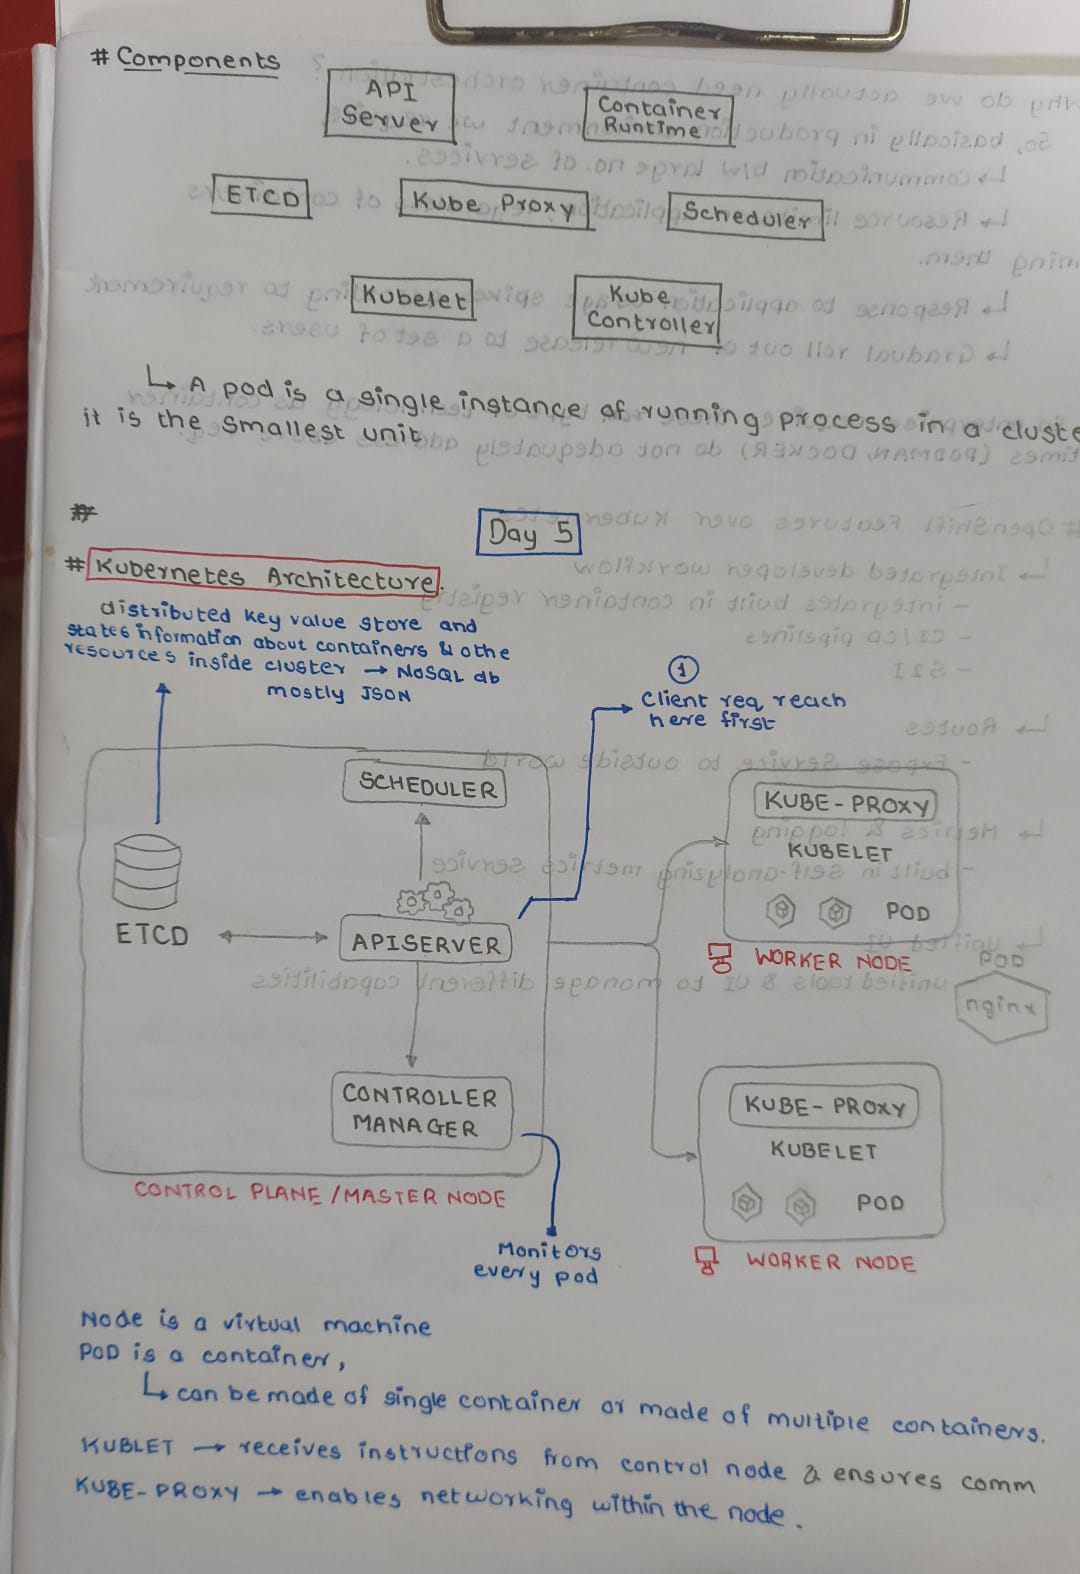 # Components
API
Server
Container
Runtime
ETCD
Kube Proxy
Scheduler
Kubelet
Kube
Controller
↳ A pod is a single instance of running process in a cluste
it is the smallest unit
#
Day 5
# Kubernetes Architecture.
distributed key value store and
states information about containers & othe
resources inside cluster → NoSQL db
mostly JSON
1
Client req reach
here first
SCHEDULER
KUBE-PROXY
KUBELET
POD
ETCD
APISERVER
WORKER NODE
POD
nginx
CONTROLLER
MANAGER
KUBE-PROXY
KUBELET
POD
CONTROL PLANE / MASTER NODE
Monitors
every pod
WORKER NODE
Node is a virtual machine
POD is a container,
↳ can be made of single container or made of multiple containers.
KUBLET → receives instructions from control node & ensures comm
KUBE-PROXY → enables networking within the node.